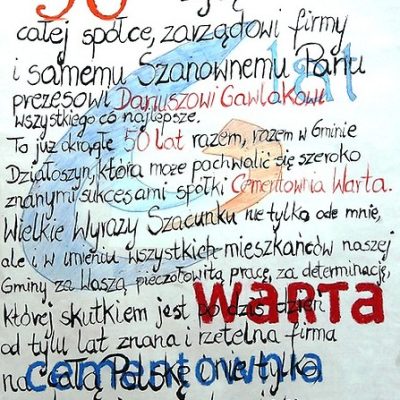 50
całej spółce, zarządowi firmy
i samemu Szanownemu Panu
prezesowi Dariuszowi Gawlakowi
wszystkiego co najlepsze.
lat
To już okrągłe 50 lat razem, razem w Gminie
Działoszyn, która może pachwalić się szeroko
znanymi sukcesami spółki Cementownia Warta.
Wielkie Wyrazy Szacunku nie tylko ode mnie,
ale i w imieniu wszystkich mieszkańców naszej
Gminy za Waszą pieczołowitą pracę, za determinację,
której skutkiem jest po dziś dzień
WARTA
od tylu lat znana i rzetelna firma
na całą Polskę i nie tylko
cementownia